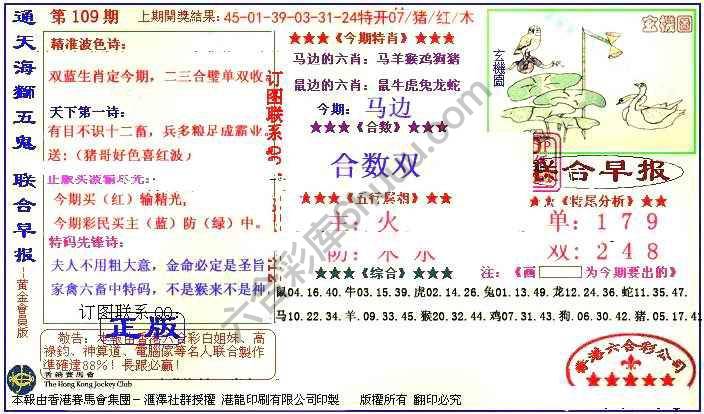 通天海獅五鬼 联合早报
—黄金會員版
第109期
上期開獎結果：45-01-39-03-31-24特开07/猪/红/木
精准波色诗：
双蓝生肖定今期，二三合璧单双收
天下第一诗：
有目不识十二畜，兵多粮足成霸业
送：（猪哥好色喜红波）
今期买（红）输精光，
今期彩民买主（蓝）防（绿）中。
特码先锋诗：
夫人不用粗大意，金命必定是圣旨
家禽六畜中特码，不是猴来不是神
订图联系QQ：
正版
敬告：
禄鈞、神算道、電腦傢等名人联合製作
準確達88%！長跟必贏！
香港賽馬會
The Hong Kong Jockey Club
订图联系
★★★★《今期特肖》★★★★
马边的六肖：马羊猴鸡狗猪
鼠边的六肖：鼠牛虎兔龙蛇
今期：马边
★★★《合数》★★★
合数双
★★★《五行属相》★★★
主：火
防：木水
★★★《综合》★★★
玄機圖
玄機圖
联合早报
★★《特尾分析》★★
单：179
双：248
注：《画 为今期要出的》
鼠04.16.40.牛03.15.39.虎02.14.26.兔01.13.49.龙12.24.36.蛇11.35.47.
马10.22.34.羊.09.33.45.猴20.32.44.鸡07.31.43.狗.06.30.42.猪.05.17.41
香港六合彩公司
六合彩库6huku.com
本報由香港賽馬會集團－滙澤社群授權 港龍印刷有限公司印製 版權所有 翻印必究